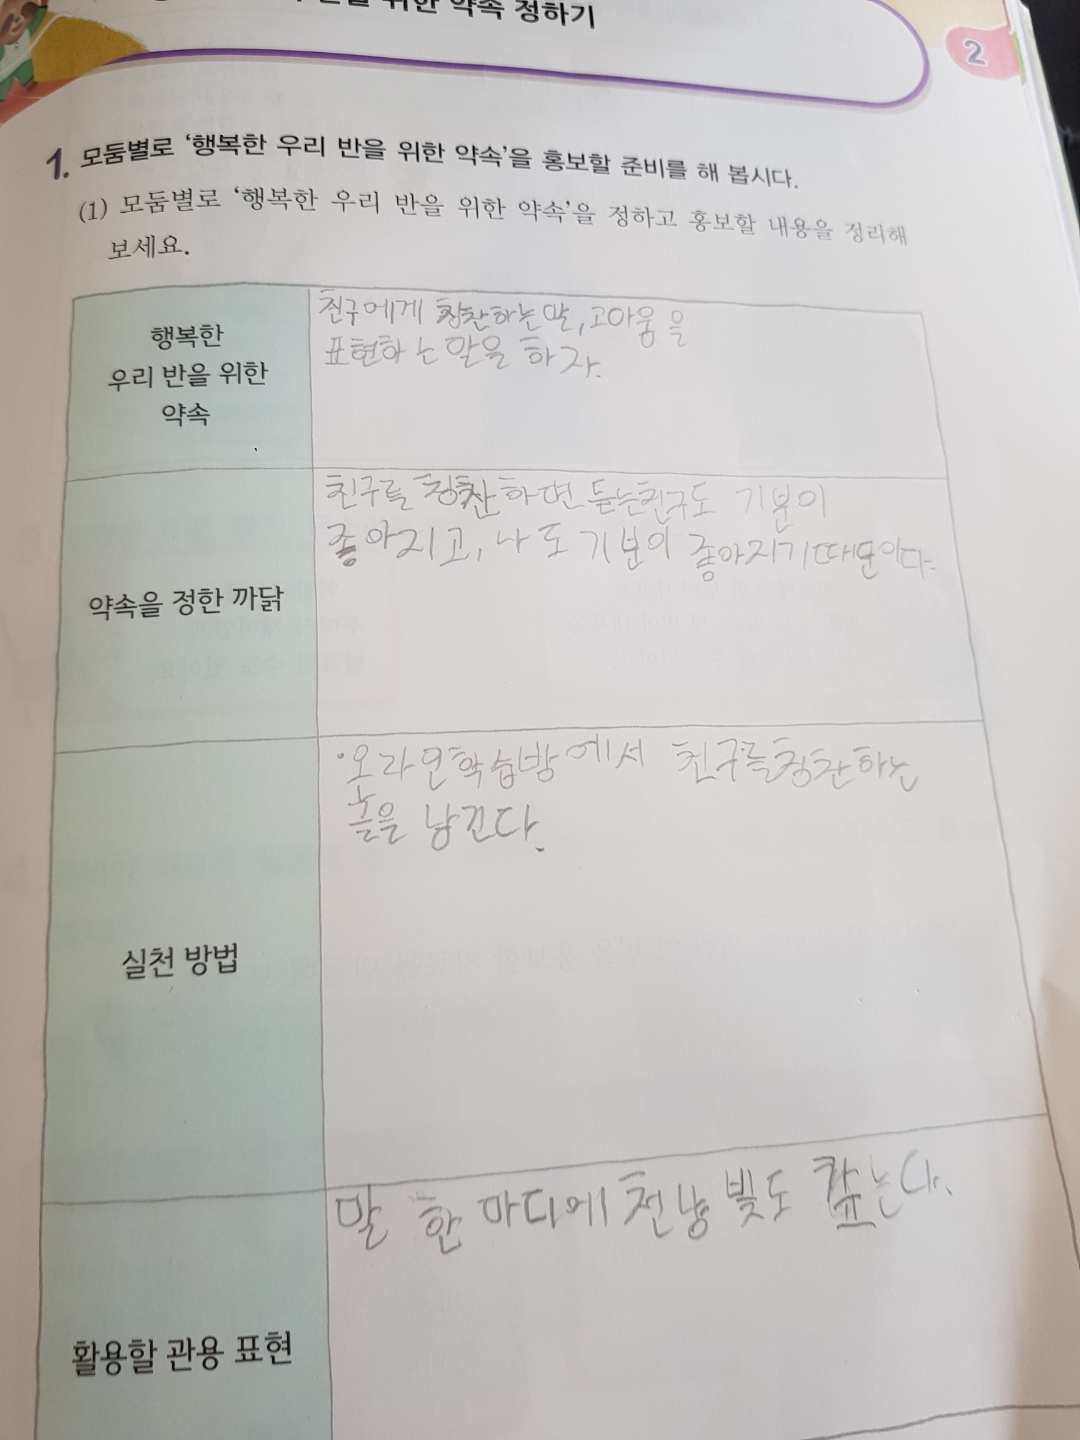 위한 약속 정하기
2
1. 모둠별로 ‘행복한 우리 반을 위한 약속’을 홍보할 준비를 해 봅시다.
(1) 모둠별로 ‘행복한 우리 반을 위한 약속’을 정하고 홍보할 내용을 정리해
보세요.
행복한
우리 반을 위한
약속
친구에게 칭찬하는말, 고마움을
표현하는 말을 하자.
약속을 정한 까닭
친구를 칭찬하면 듣는친구도 기분이
좋아지고, 나도 기분이 좋아지기때문이다.
실천 방법
·온라인학습방에서 친구를칭찬하는
글을 남긴다.
활용할 관용 표현
말 한 마디에 천냥 빚도 갚는다.